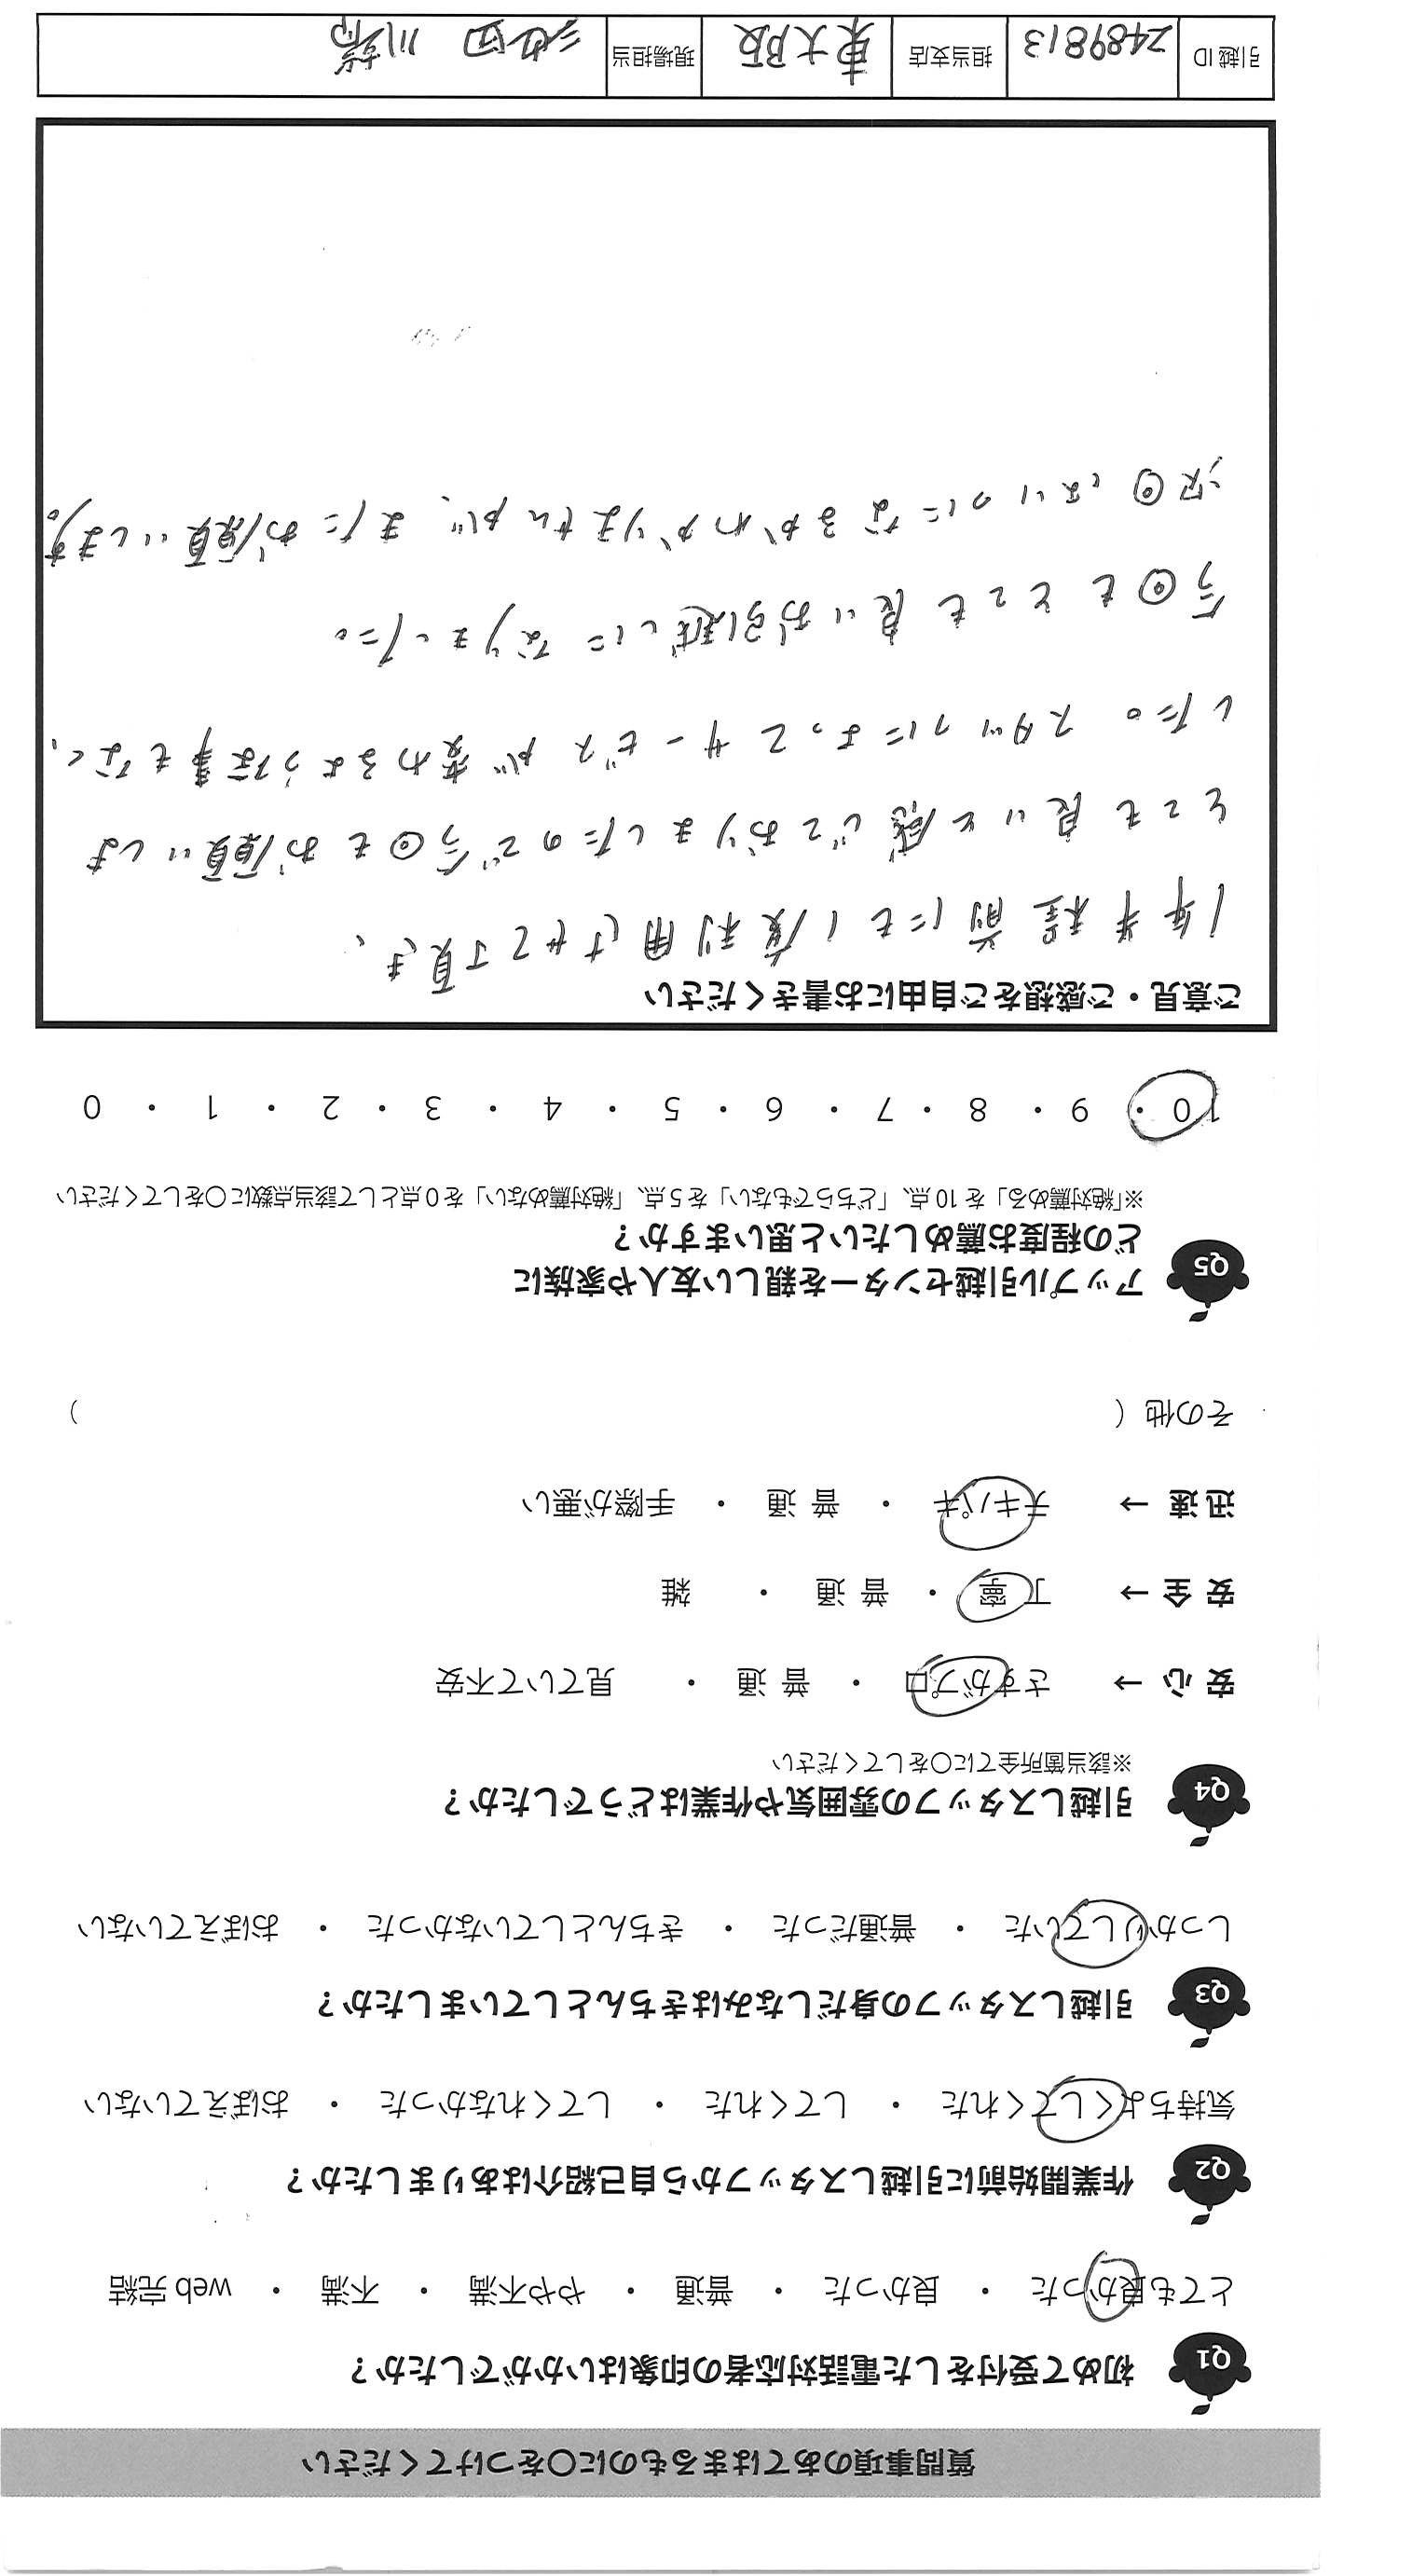 質問事項のあてはまるものに○をつけてください
Q1 初めて受付をした電話対応者の印象はいかがでしたか？
とても良かった ・ 良かった ・ 普通 ・ やや不満 ・ 不満 ・ web 完結
Q2 作業開始前に引越しスタッフから自己紹介はありましたか？
気持ちよくしてくれた ・ してくれた ・ してくれなかった ・ おぼえていない
Q3 引越しスタッフの身だしなみはきちんとしていましたか？
しっかりしていた ・ 普通だった ・ きちんとしていなかった ・ おぼえていない
Q4 引越しスタッフの雰囲気や作業はどうでしたか？
※該当箇所全てに○をしてください
安心 → さすがプロ ・ 普通 ・ 見ていて不安
安全 → 丁寧 ・ 普通 ・ 雑
迅速 → テキパキ ・ 普通 ・ 手際が悪い
その他（ ）
Q5 アップル引越センターを親しい友人や家族に
どの程度お薦めしたいと思いますか？
※「絶対薦める」を 10 点、「どちらでもない」を 5 点、「絶対薦めない」を 0 点として該当点数に○をしてください
10 ・ 9 ・ 8 ・ 7 ・ 6 ・ 5 ・ 4 ・ 3 ・ 2 ・ 1 ・ 0
ご意見・ご感想をご自由にお書きください
1年半程前にも1度利用させて頂き、
とても良いと感じておりましたので今回もお願いしま
した。スタッフによってサービスが変わるような事もなく、
今回もとっても良いお引越しになりました。
次回はいつになるかわかりませんが、またお願いします。
引越ID 2489813 担当支店 東大阪 現場担当 池田 川端